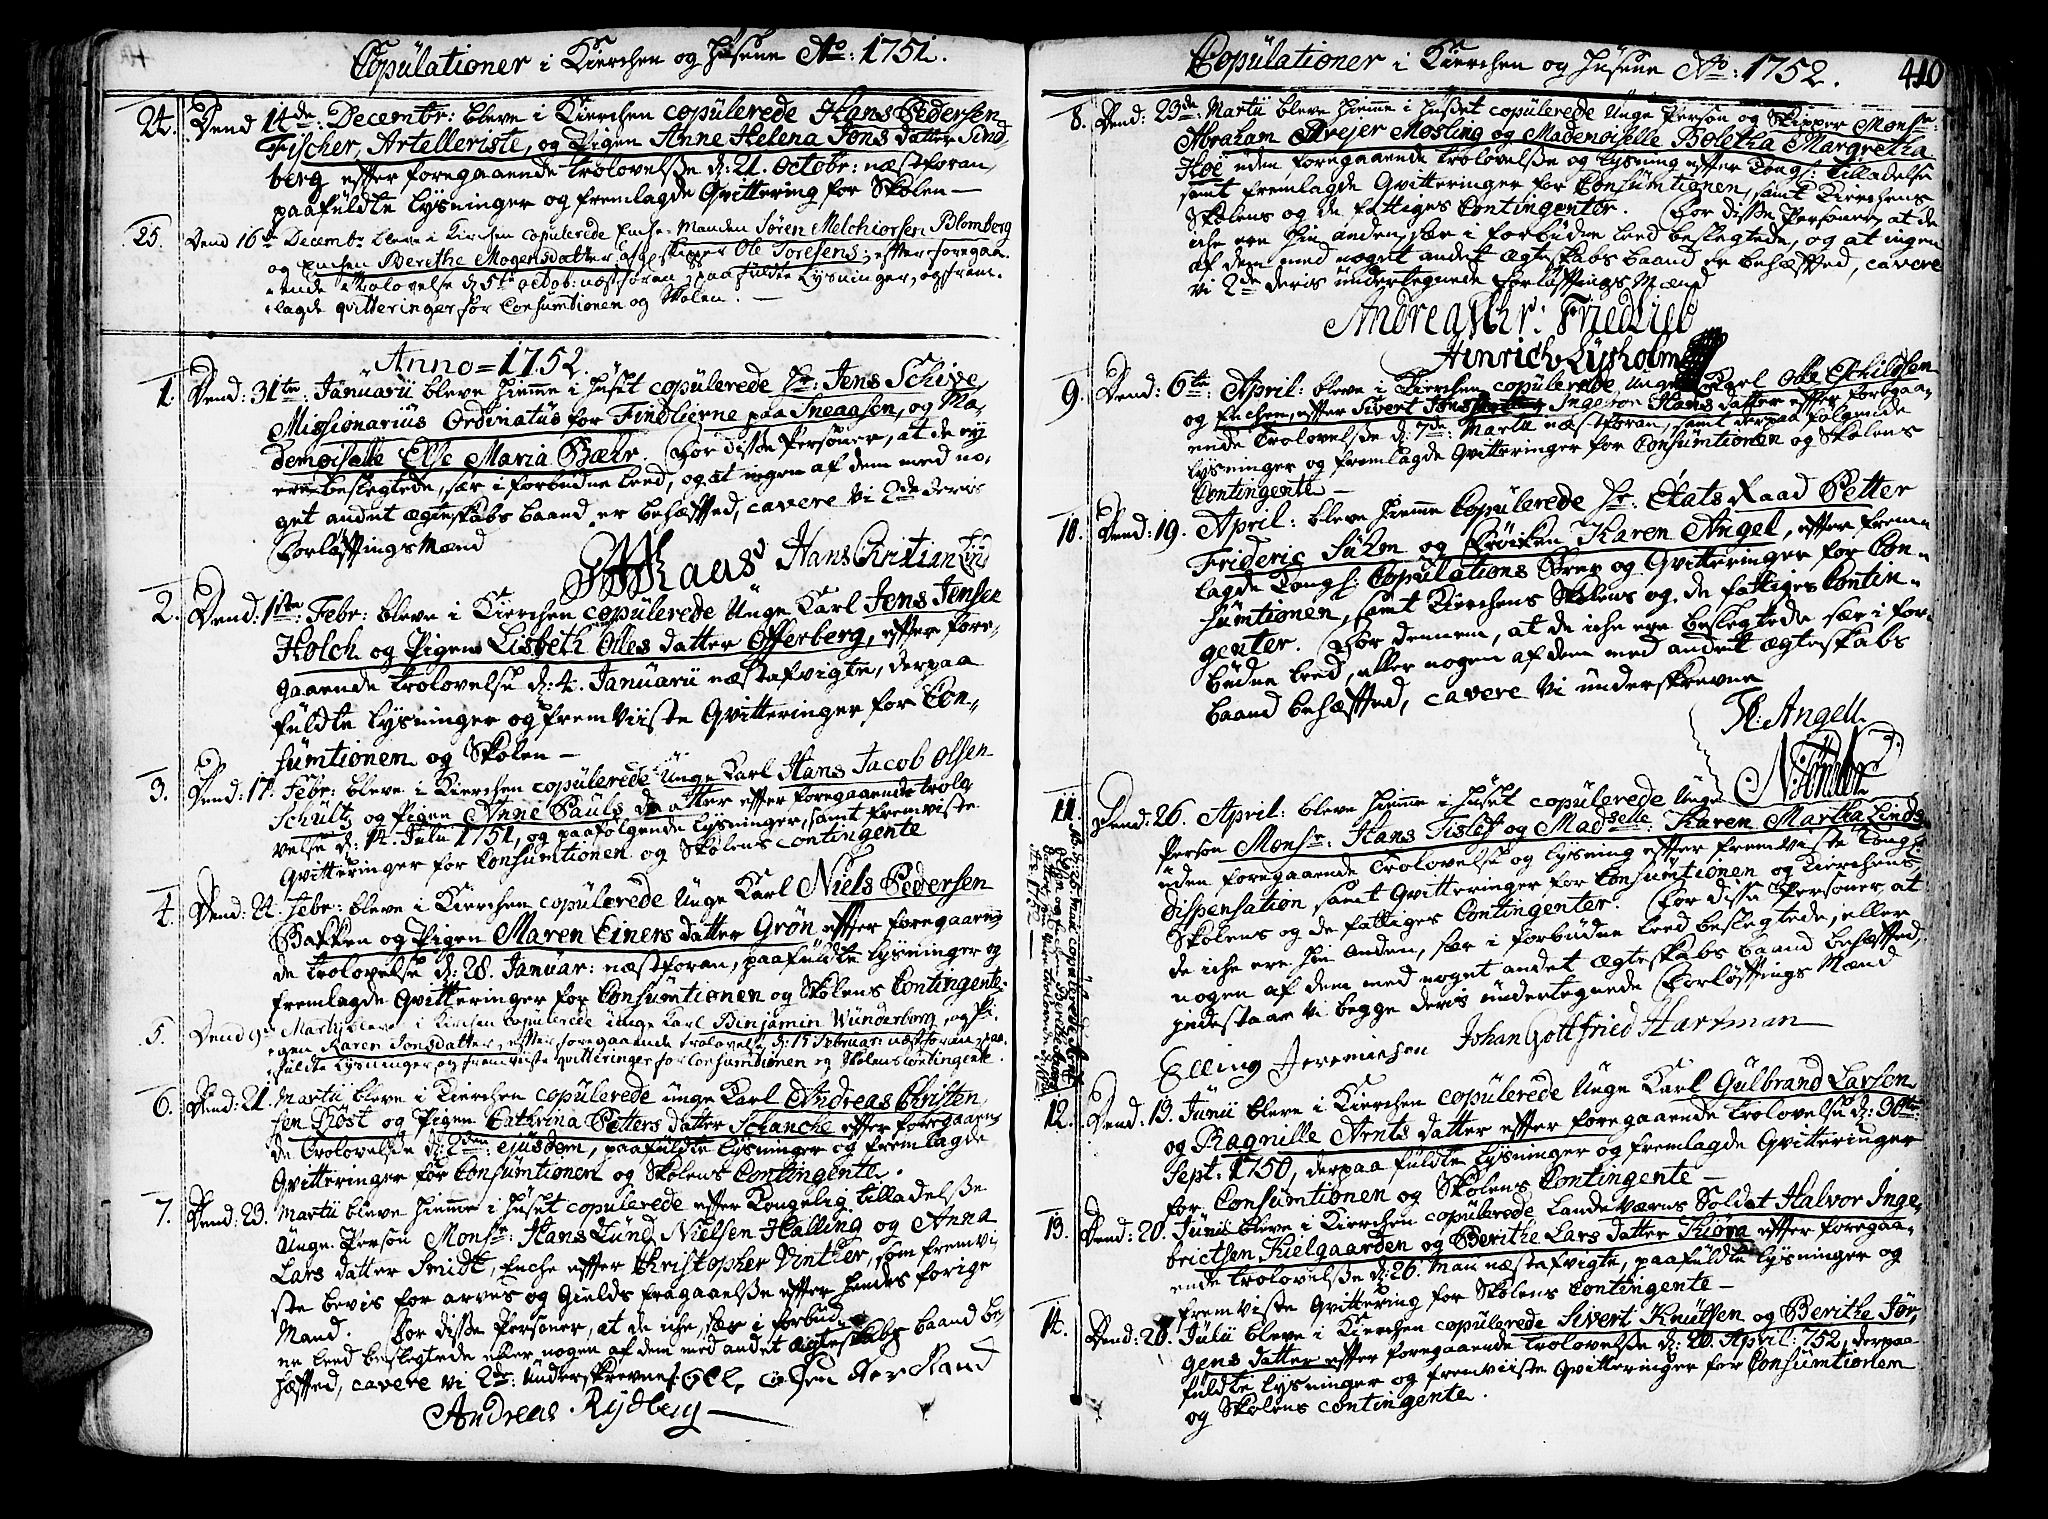 Copulationer i Kierchen og Husene Ao: 1751.
24. Dend 14de Decembr: bleve i Kierchen copulerede Hans Pedersen
Fischer, Artelleriste, og Pigen Anne Helena Jons datter Lind-
berg effter foregaaende trolovelse d: 21. Octobr: næstforan,
paafuldte lysninger og fremlagde Qvittering for Skolen —
25. Dend 16de Decembr bleve i Kirchen copulerede Enche-Manden Søren Melchiorsen Blomberg
og Enchen Berithe Mogensdatter, afg. Skipper Ole Toresens, effter foregaa-
ende Trolovelse d: 5te Octob: næstforan, paafuldte Lysninger, og frem-
lagde qvitteringer for Consumtionen og Skolen. —
Anno = 1752.
1. Dend: 31te: Januarii bleve hiemme i huset copulerede Hr: Jens Schive
Missionarius Ordinatus for Findlierne paa Sneaasen, og Ma-
demoiselle Else Maria Bæhr. For disse Personer, at de ey
ere beslegtede, sær i forbudne leed, og at ingen af dem med no-
get andet ægteskabs baand er behæfted, cavere Vi 2de deris
Forløftnings Mænd
Hans Christian
2. Dend: 1ste: Febr: bleve i Kierchen copulerede Unge Karl Jens Jensen
Holch og Pigen Lisbeth Olles datter Offerberg, effter fore-
gaaende trolovelse d: 4. Januarii næstafvigte, derpaa
fuldte lysninger og fremviiste Qvitteringer for Con-
sumtionen og Skolen —
3. Dend: 17. Febr: bleve i Kierchen copulerede Unge Karl Hans Jacob Olsen
Schultz og Pigen Anne Pauls datter effter foregaaende trolo-
velse d: 14. Julii 1751, og paafølgende lysninger, samt fremviste
Qvitteringer for Consumtionen og Skolens contingente
4. Dend: 24. Febr: bleve i Kierchen copulerede Unge Karl Niels Pedersen
Bakken og Pigen Maren Einers datter Grøn effter foregaaen-
de trolovelse d: 28. Januar: næstforan, paafuldte lysninger og
fremlagde Qvitteringer for Consumtionen og Skolens Contingente
5. Dend 9de Marty bleve i Kirchen Copulerede Unge Karl Binjamin Wunderborg, og Pi-
gen Karen Jonsdatter, effter foregaaende Trolovelse d: 15 Februar: næstforan, paa-
fuldte Lysninger, og fremviste qvitteringer for Consumtionen og Skolens Contingente.
6. Dend: 21. Martii bleve i Kierchen copulerede unge Karl Andreas Christen-
sen Røst og Pigen Cathrina Petters datter Schanche effter foregaaen-
de trolovelse d: 2den: ejusdem, paafuldte lysninger og fremlagde
Qvitteringer for Consumtionen og Skolens Contingente.
7. Dend: 23. Martii bleve hiemme i huset copulerede effter Kongelig tilladelse
Unge Person Monsr: Hans Lund Nielsen Halling og Anna
Lars datter Smidt, Enche effter Christopher Vinther, som fremvi-
ste bevis for arves og Gields fragaaelse effter hendes forige
Mand. For disse Personer, at de iche, sær i forbud-
ne leed beslegtede eller nogen af dem med andet ægteskabs baand be-
hæfted, cavere vi 2de: Underskrevne
Andreas Rydberg
Copulationer i Kierchen og Husene Ao: 1752. 410
8. Dend: 23de: Martii bleve hiemme i huset copulerede Unge Person og Skipper Monsr:
Abraham Drejer Mosling og Mademoiselle Boletha Margretha
Hoe uden foregaaende trolovelse og lysning effter Kongl: tilladelse
samt fremlagde Qvitteringer for Consumtionen, samt Kierchens
Skolens og de fattiges Contingenter. For disse Personer at de
iche ere hin anden sær i forbudne leed beslegtede, og at ingen
af dem med noget andet ægteskabs baand er behæfted, cavere
vi 2de deris undertegnede Forløftnings Mænd
Andreas Chr: Friedlieb
Hinrich Lysholm
9. Dend: 6te: April: bleve i Kierchen copulerede Unge Karl Ole Eskildsen
og Enchen effter Sivert Jons Ingebor Hans datter effter foregaa-
ende trolovelse d: 7de: Martii næstforan, samt derpaa fulgende
lysninger og fremlagde Qvitteringer for Consumtionen og Skolens
Contingente —
10. Dend: 19. April: bleve hiemme Copulerede Hr: Etats Raad Petter
Frideric Suhm og Frøiken Karen Angel, effter frem-
lagde Kongl: Copulations Brev og Qvitteringer for Con-
sumtionen, samt Kierchens Skolens og de fattiges Contin-
genter. For dennem, at de iche ere beslegtede sær i for-
budne leed, eller nogen af dem med andet ægteskabs
baand behæfted, cavere Vi underskrevne
Th: Angell
11. Dend: 26. April: bleve hiemme i huset copulerede Unge
Person Monsr: Hans Fislef og Madselle: Karen Martha Linds
uden foregaaende trolovelse og lysning effter fremviste Kongl:
Dispensation samt Qvitteringer for Consumtionen og Kierchens
Skolens og de fattiges Contingenter. For disse Personer, at
de iche ere hin Anden, sær i forbudne leed beslegtede, eller
nogen af dem med noget andet ægteskabs baand behæfted,
indestaar vi begge deris undertegnede Forløftnings Mænd
Elling Jeremiesen Johan Gottfried Hartman
12. Dend: 13. Junii bleve i Kierchen copulerede Unge Karl Gulbrand Larsen
og Ragnille Arnts datter effter foregaaende trolovelse d: 30te:
Sept: 1750, derpaa fuldte lysninger og fremlagde Qvitteringer
for Consumtionen og Skolens Contingente —
13. Dend: 20. Junii bleve i Kierchen copulerede Lande Værns Soldat Halvor Inge-
brictsen Kielgaarden og Berithe Lars datter effter foregaa-
ende trolovelse d: 26. Maii næstafvigte, paafuldte lysninger og
fremviste Qvittering for Skolens Contingente —
14. Dend: 20. Julii bleve i Kierchen copulerede Sivert Knutsen og Berithe Jør-
gens datter effter foregaaende trolovelse d: 20. April: 752, derpaa
fuldte lysninger og fremviiste Qvitteringer for Consumtionen
og Skolens contingente.